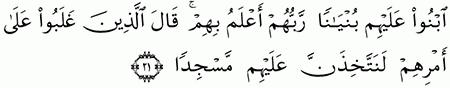 ٱبْنُوا۟ عَلَيْهِم بُنْيَـٰنًا ۖ رَّبُّهُمْ أَعْلَمُ بِهِمْ ۚ قَالَ ٱلَّذِينَ غَلَبُوا۟ عَلَىٰٓ
أَمْرِهِمْ لَنَتَّخِذَنَّ عَلَيْهِم مَّسْجِدًا ﴿٢١﴾